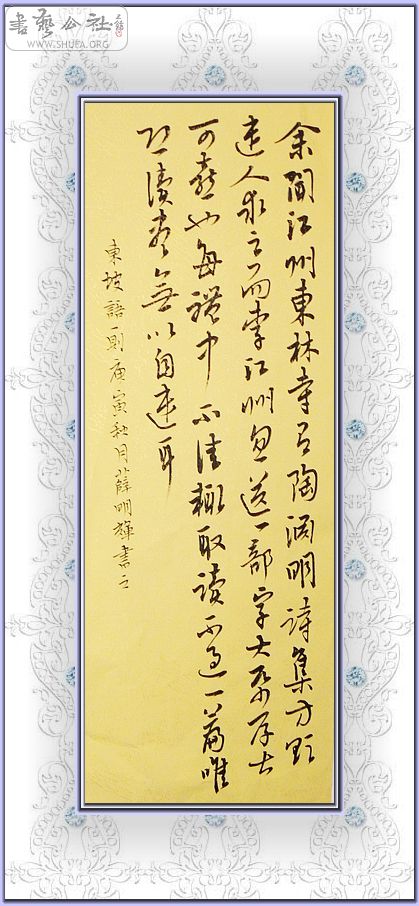 書藝公社
WWW.SHUFA.ORG
余聞江州東林寺有陶淵明詩集方欲
遣人求之而李江州忽送一部字大紙厚甚
可喜也每體中不佳輒取讀不過一篇唯
恐讀盡無以自遣耳
東坡語一則庚寅秋月薛明輝書之